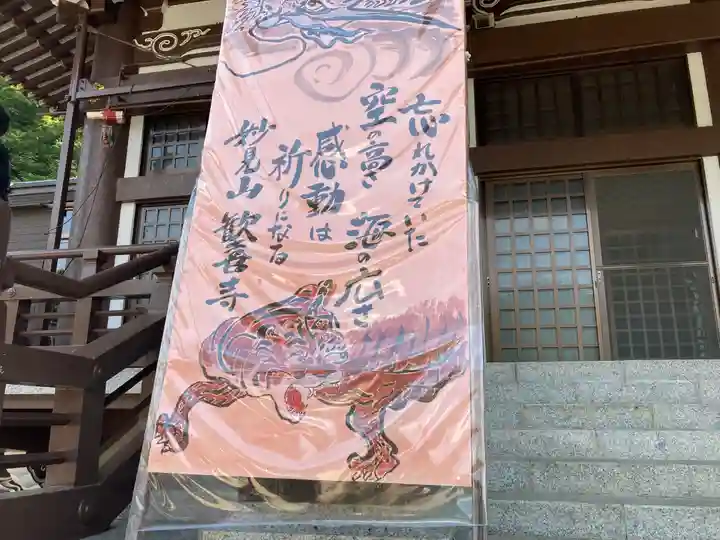 忘れかけていた
空の高さ 海の広さ
感動は
祈りになる
妙見山 歓喜寺